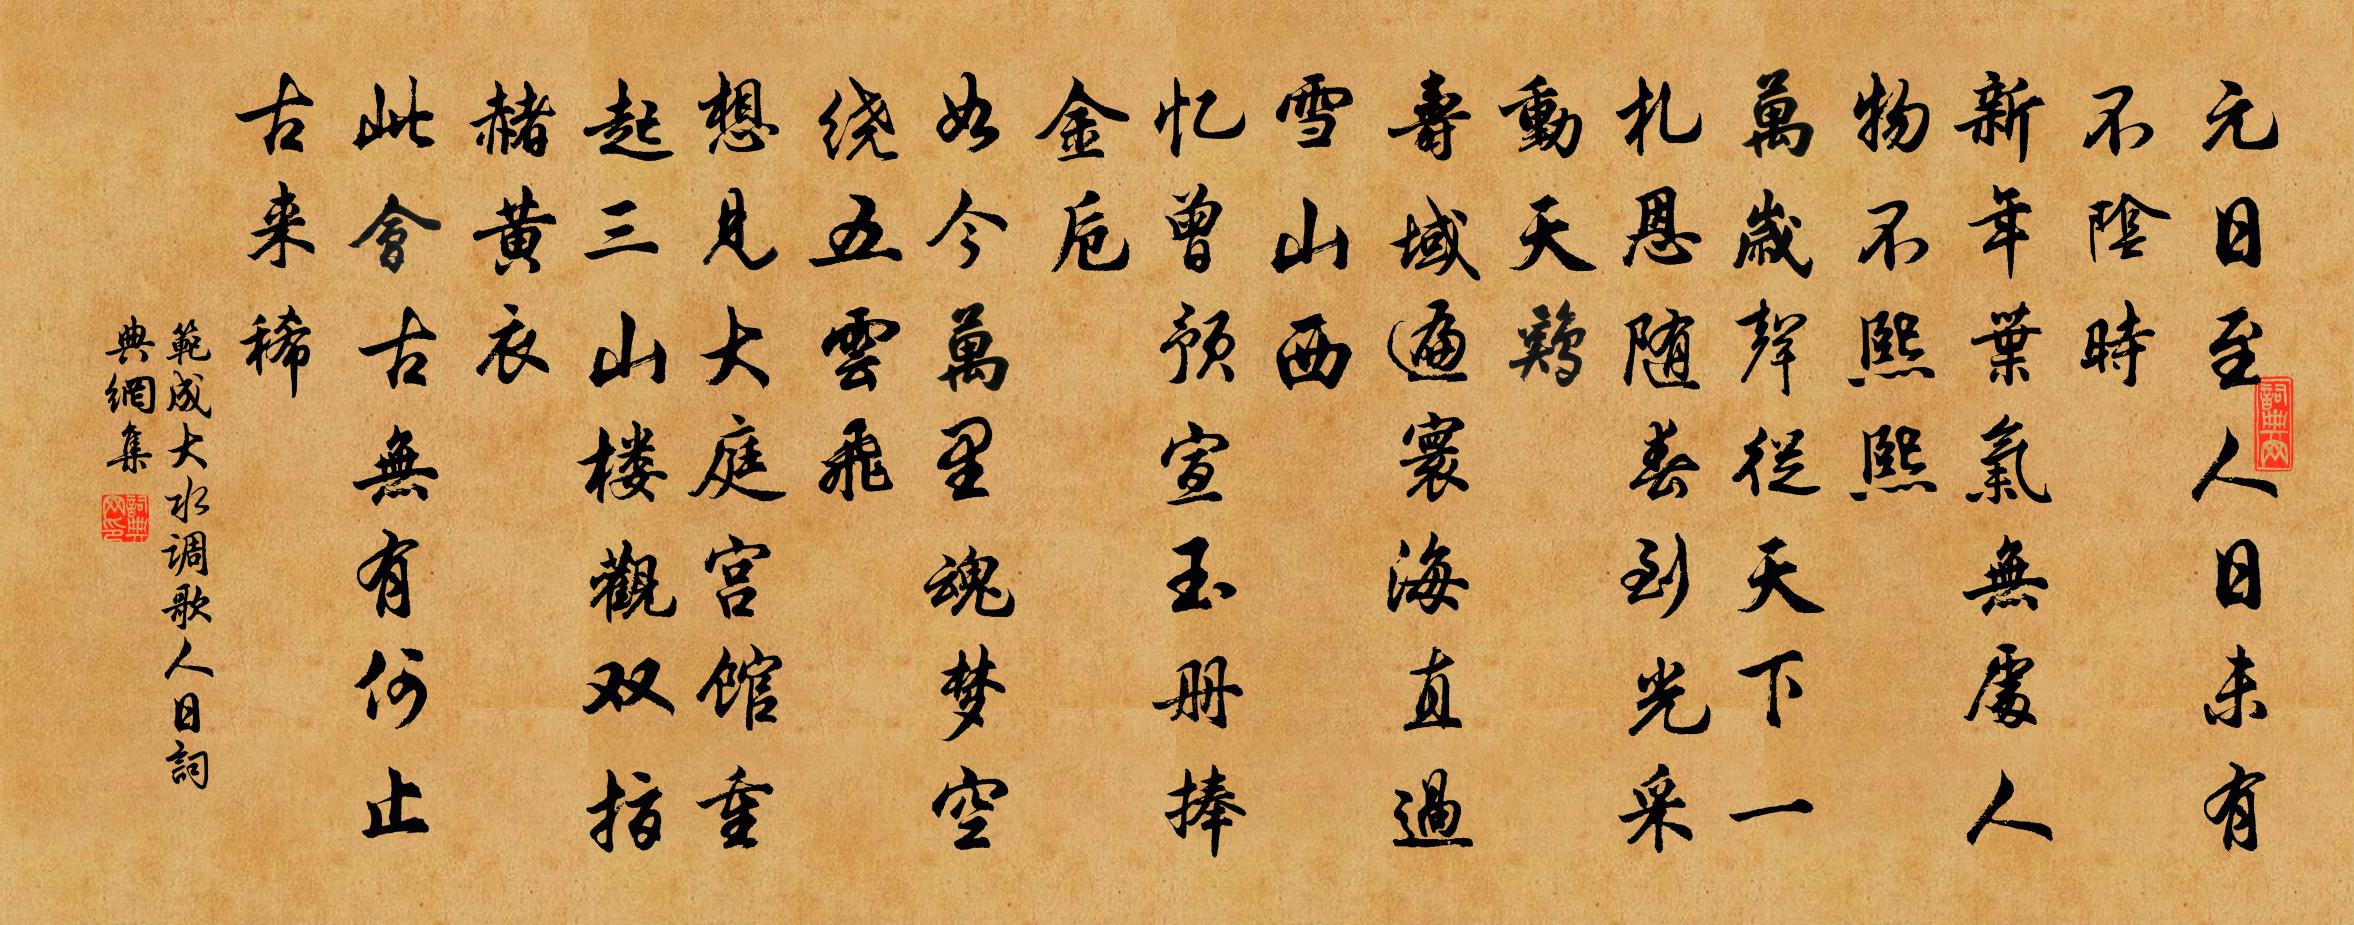 元日至人日未有
不陰時
新年葉氣無處人
物不熙熙
萬歲聲從天下一
札恩随春到光采
動天鷄
壽域遍寰海直過
雪山西
忆曾预宣玉册捧
金卮
如今萬里魂梦空
绕五雲飛
想見大庭宫馆重
起三山楼觀双指
赭黄衣
此會古無有何止
古来稀
範成大水调歌人日詞
典網集
詞典网
詞典网印